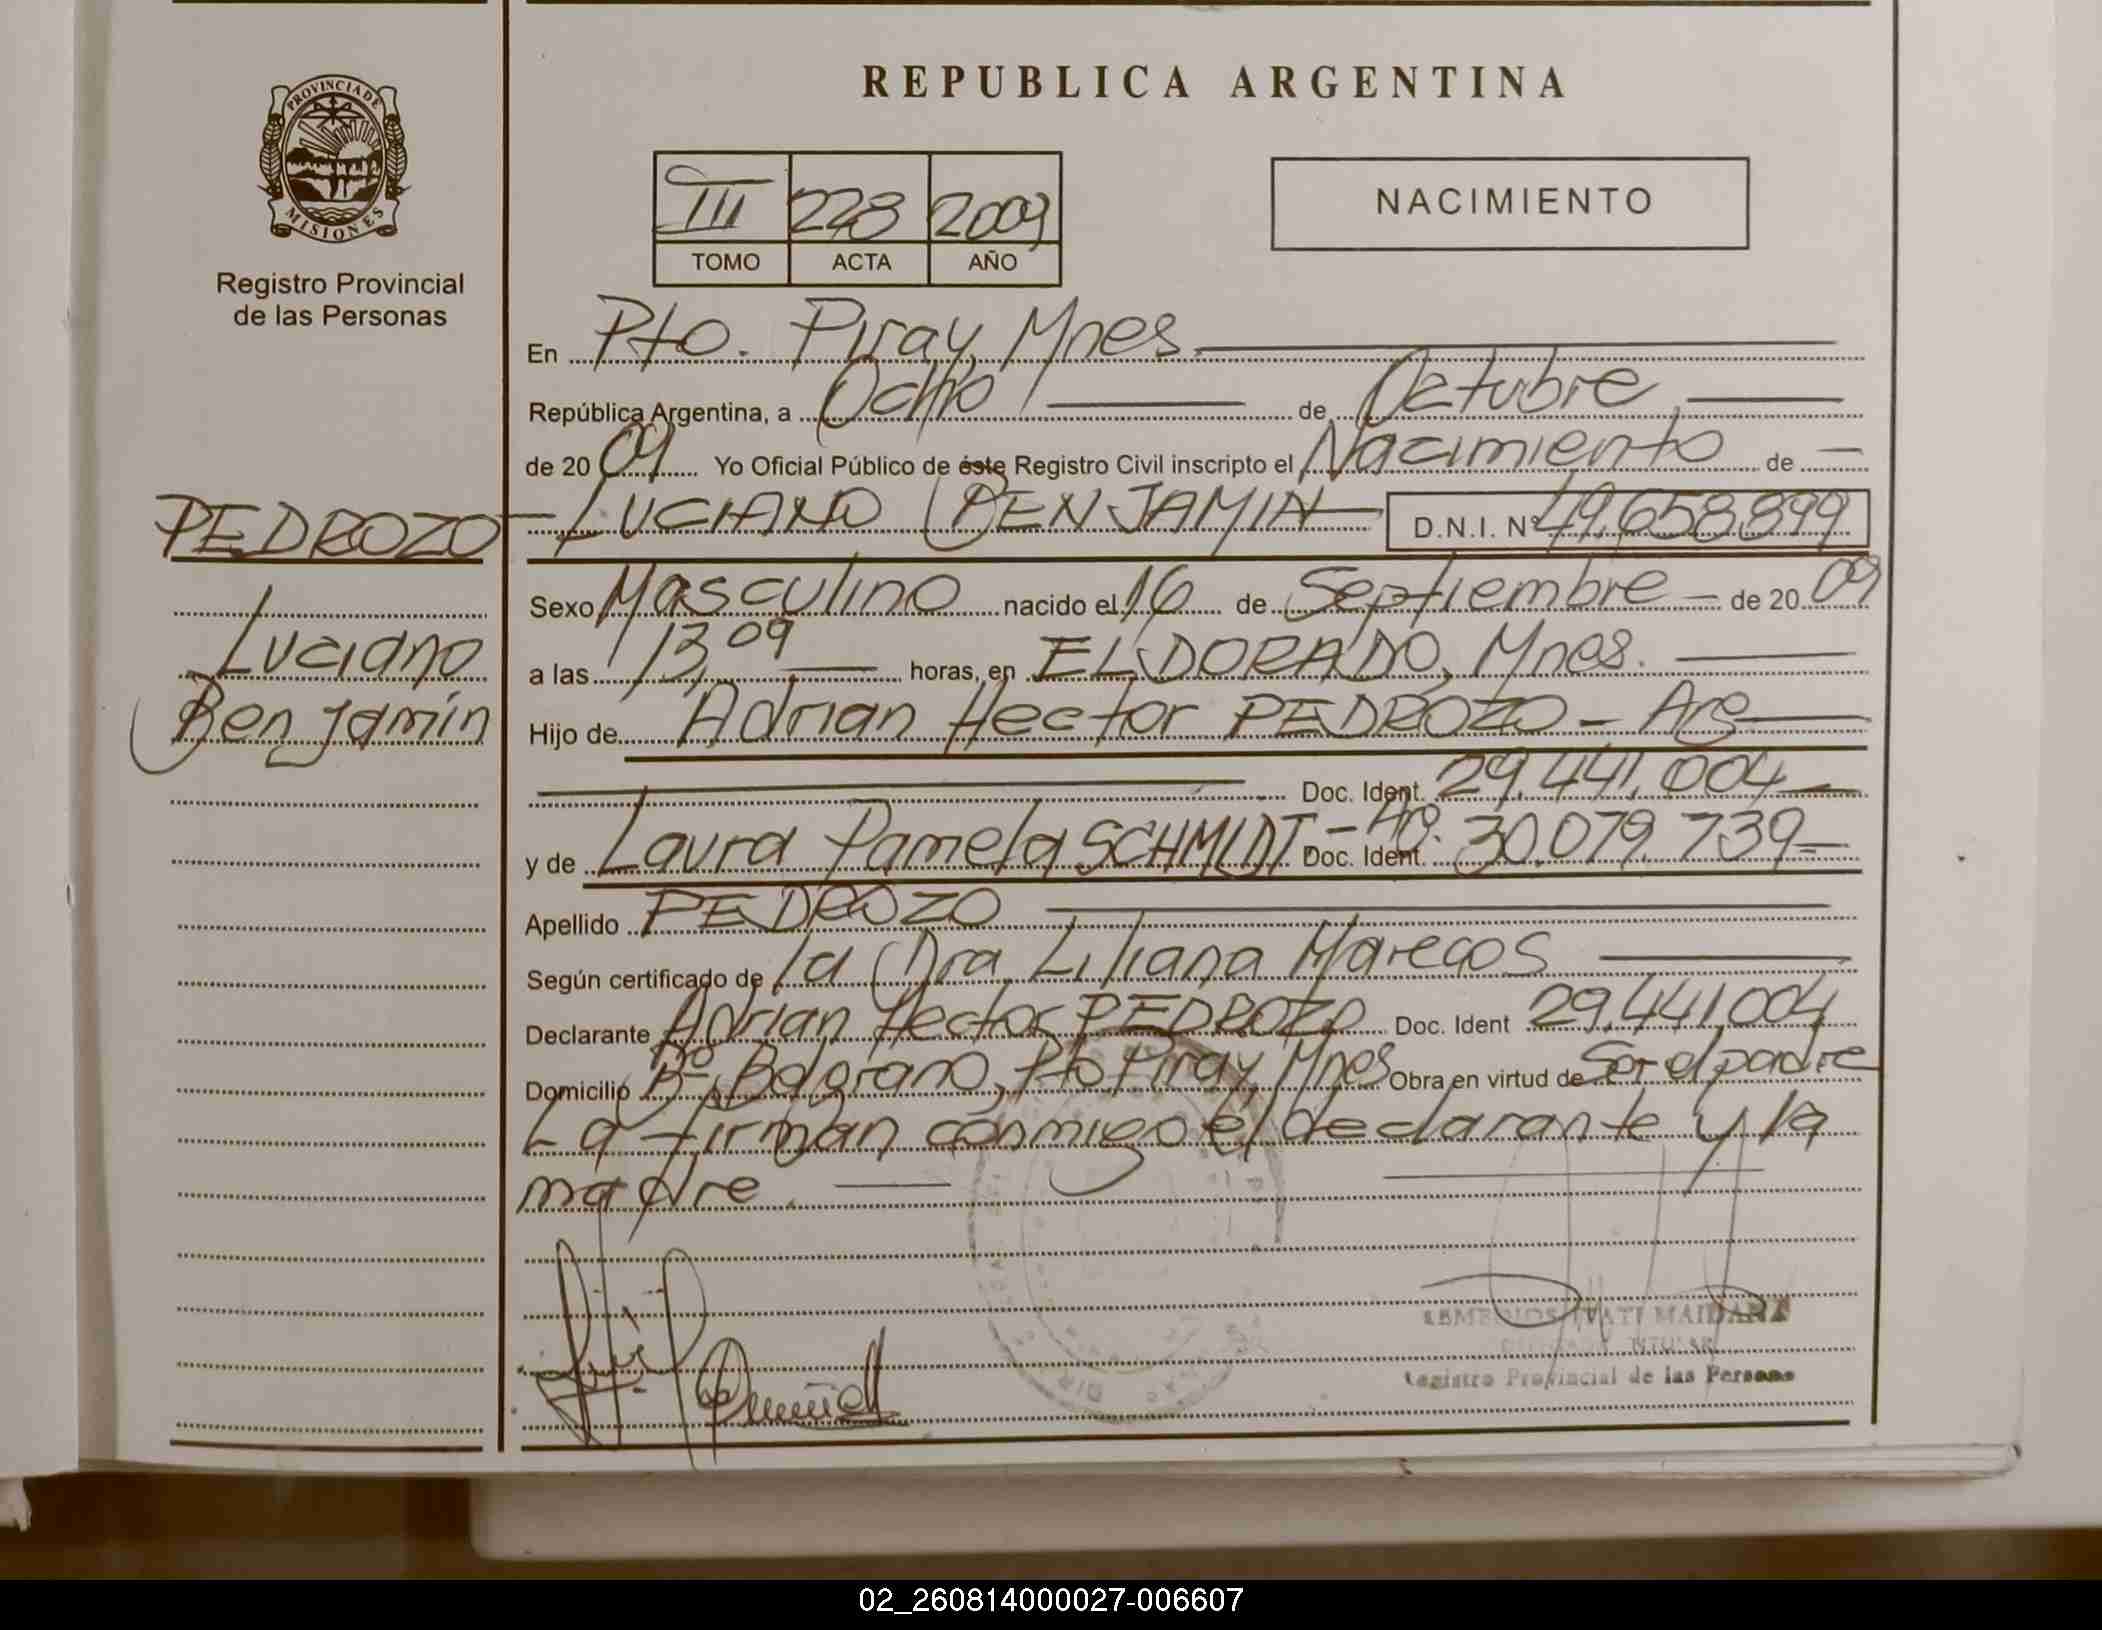 REPUBLICA ARGENTINA
PROVINCIA DE
MISIONES
Registro Provincial
de las Personas
III 228 2009
TOMO ACTA AÑO
NACIMIENTO
En Pto. Piray, Mnes.
República Argentina, a Ocho de Octubre
de 20 09 Yo Oficial Público de éste Registro Civil inscripto el Nacimiento de
PEDROZO
LUCIANO BENJAMIN D.N.I. Nº 49.658.899
Luciano
Benjamín
Sexo Masculino nacido el 16 de Septiembre de 20 09
a las 13,09 horas, en ELDORADO, Mnes.
Hijo de Adrian Hector PEDROZO - Arg
Doc. Ident. 29.441.004
y de Laura Pamela SCHMIDT - Doc. Ident. 30.079.739
Apellido PEDROZO
Según certificado de la Dra Liliana Marecos
Declarante Adrian Hector PEDROZO Doc. Ident 29.441.004
Domicilio Bº Belgrano, Pto Piray, Mnes Obra en virtud de Ser el padre
La firman conmigo el declarante y la
madre.
ITATI MAIDANA
TITULAR
Registro Provincial de las Persona
02_260814000027-006607